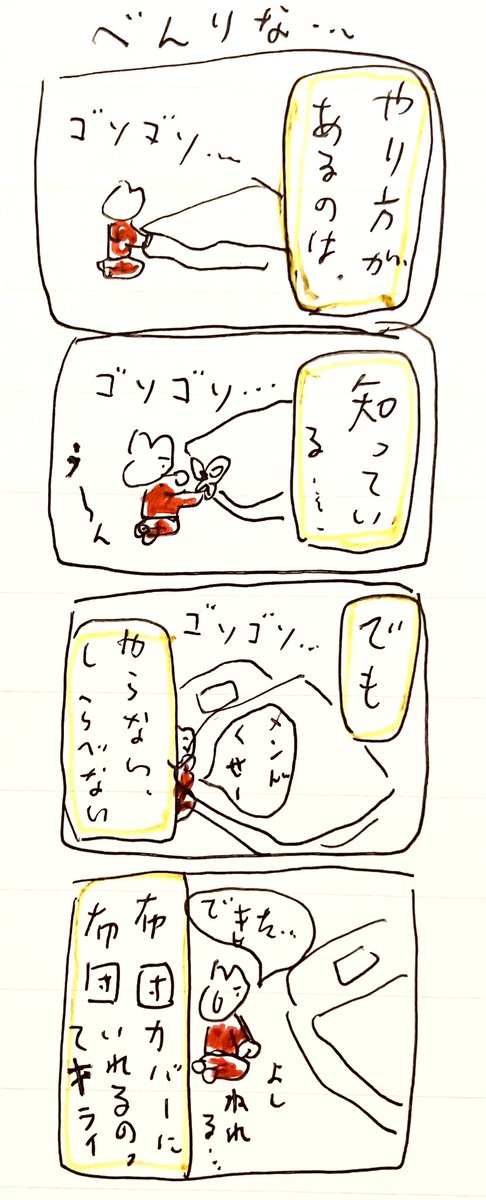 べんりな…
やり方が
あるのは.
ゴソゴソ…
知ってい
る……
ゴソゴソ…
うーん
でも
ゴソゴソ…
メンド
くせー
やらない、
しらべない
できた…
よし
ねれ
る…
布団カバーに
布団いれるのっ
てキライ